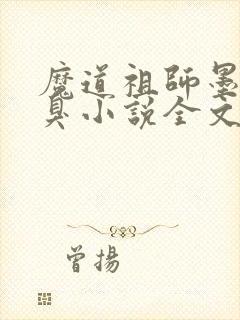 魔道祖師墨
臭小說全文
曾揚